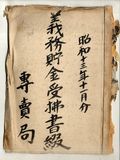 昭和十三年十一月分
義務貯金受拂書綴
專賣局